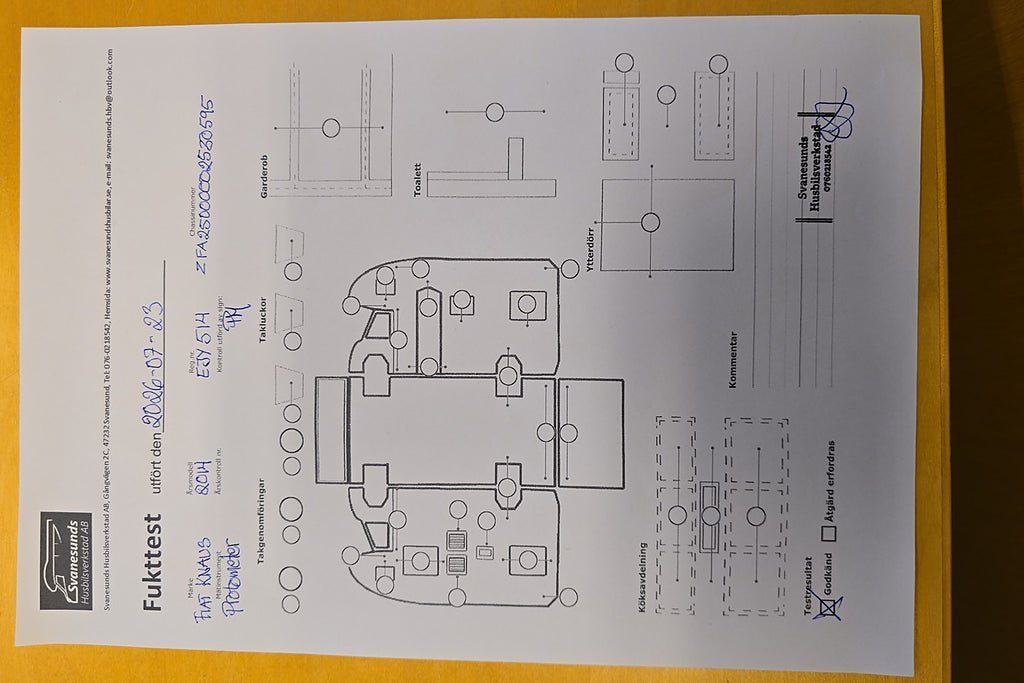 Svanesunds
Husbilsverkstad AB
Svanesunds Husbilsverkstad AB, Gängvägen 2C, 47232 Svanesund, Tel: 076-0218542, Hemsida: www.svanesundshusbilar.se, e-mail: svanesunds.hbv@outlook.com
Fukttest utfört den 2026-07-23
Märke Årsmodell Reg.nr. Chassinummer
FIAT KNAUS 2014 EJY514 ZFA25000002530595
Mätinstrument Årskontroll nr. Kontroll utförd av sign:
Protometer PH
Takgenomföringar Takluckor Garderob
Toalett
Ytterdörr
Köksavdelning
Kommentar
Testresultat
Godkänd Åtgärd erfordras
Svanesunds
Husbilsverkstad
0760218542